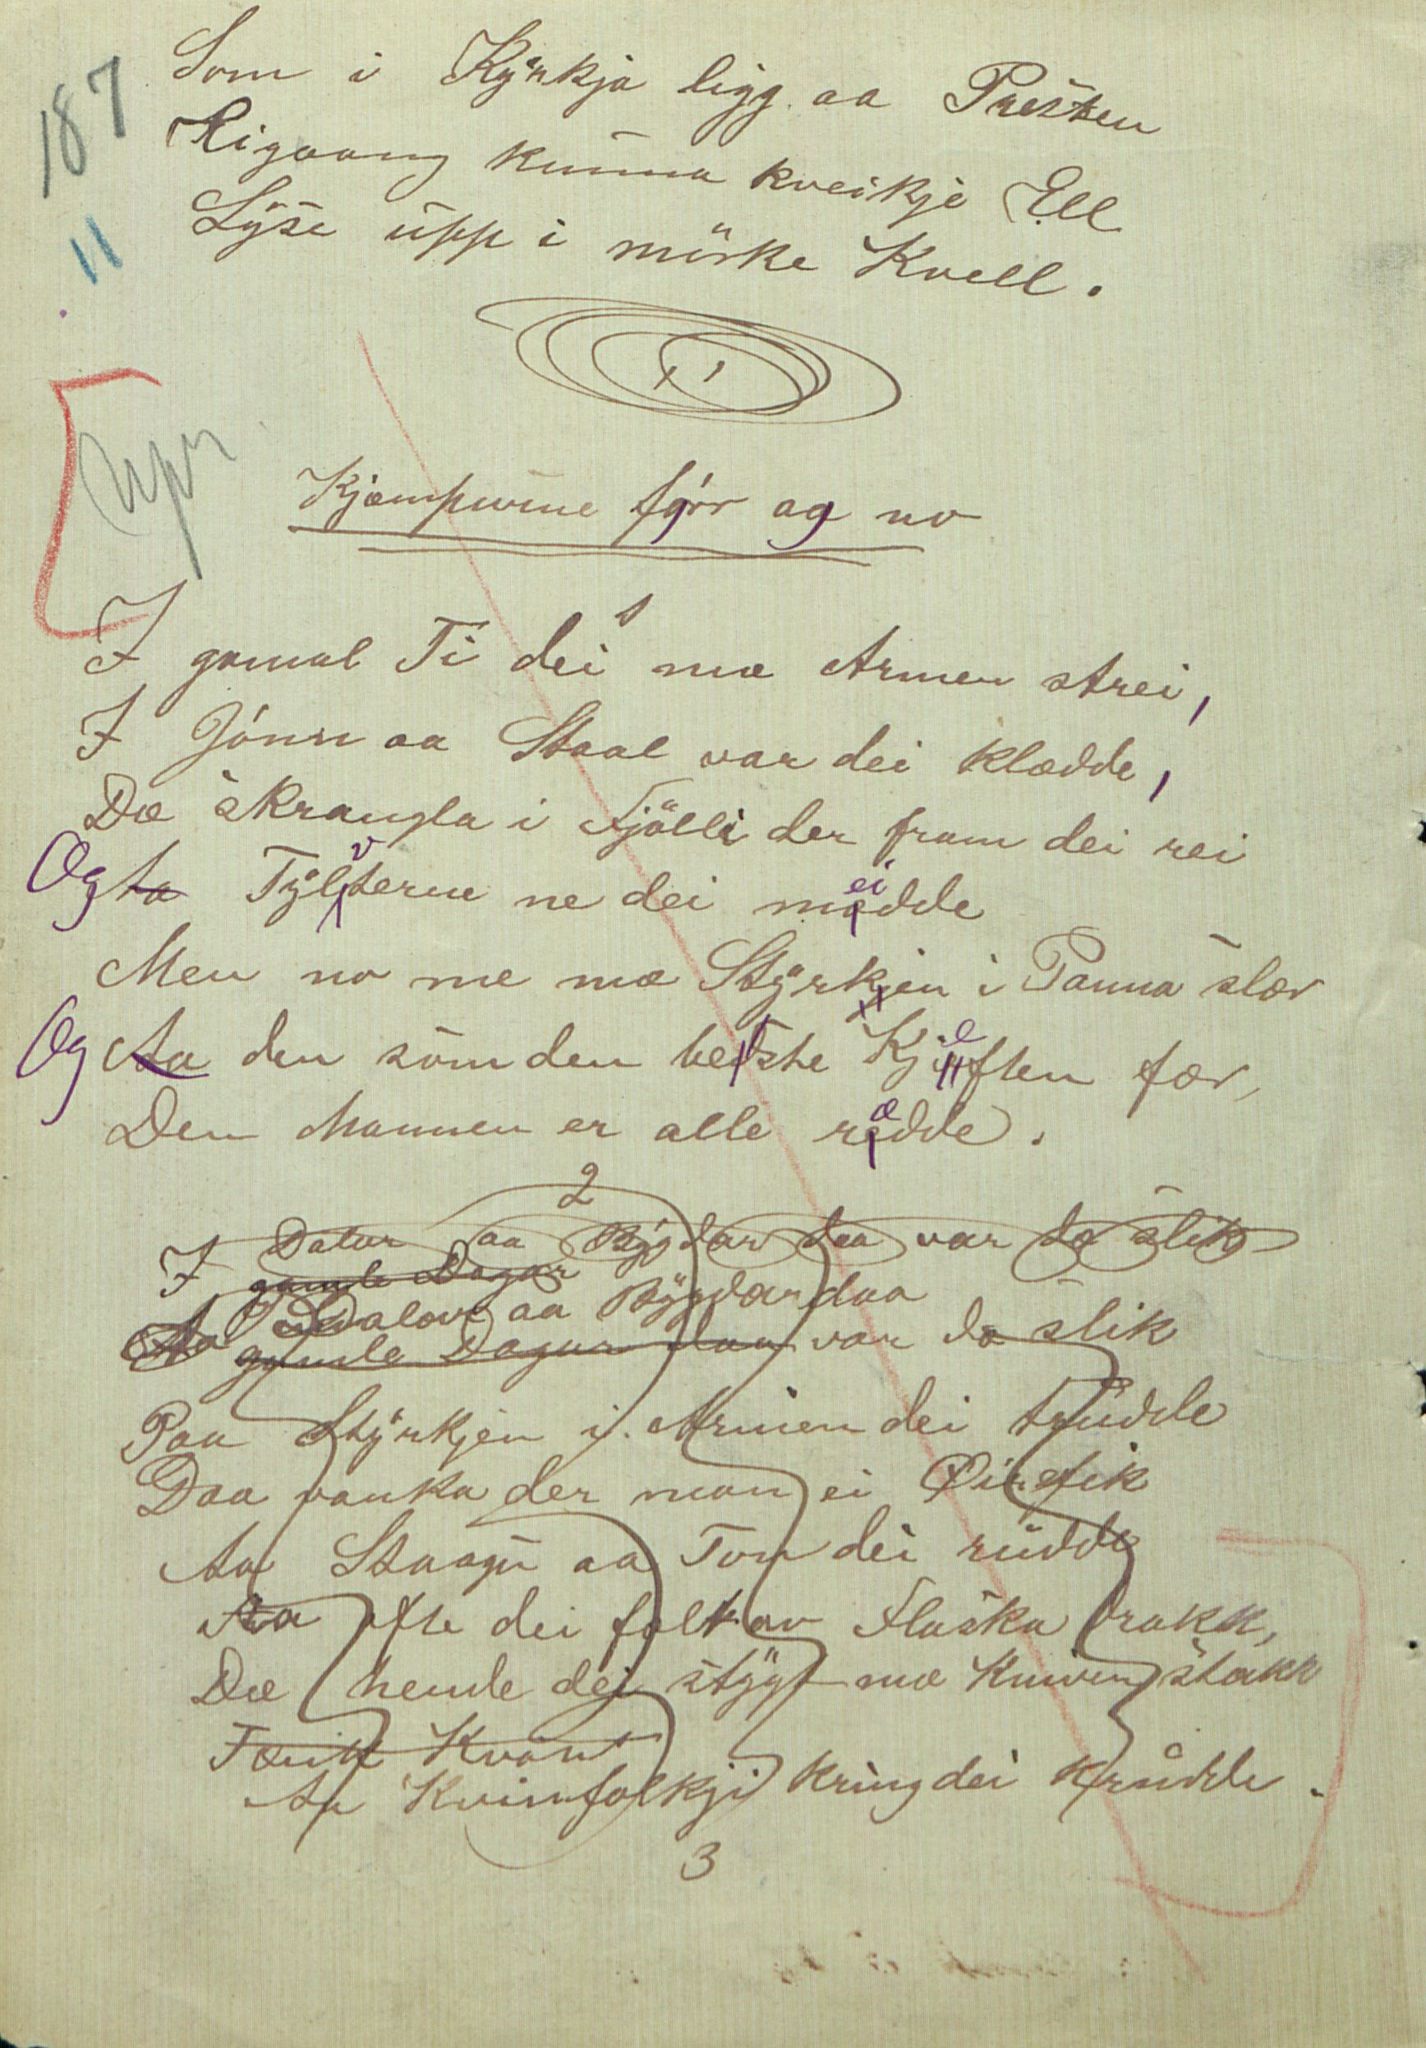 187
11
Som i Kyrkja ligg aa Presten
Eigaang kunna kveikje Ell
Lyse upp i mörke Kvell.
Kjæmpurne fyrr og no
1
I gamal Ti dei mæ Armen strei,
I Jónn aa Staal var dei klædde,
Dæ skrangla i Fjölli der fram dei rei
Og Aa Tylvterne ne dei meidde
Men no me mæ Styrkjen i Panna slær
Og Aa den som den beste Kjeften fær,
Den Mannen er alle rædde.
2
I Dalar aa Bygdar daa var dæ slik
gamle Dagar
Dalar aa Bygdar daa
Aa gamle Dagar daa var dæ slik
Paa Styrkjen i Armen dei trudde
Daa vanka der mang ei Øirefik
Aa Staagu aa Tun dei rudde
Aa ofte dei folk av Flaska drakk,
Dæ hende dei stygt mæ Kniven stakk
Aa Kvinnfolkji kring dei krudde.
3